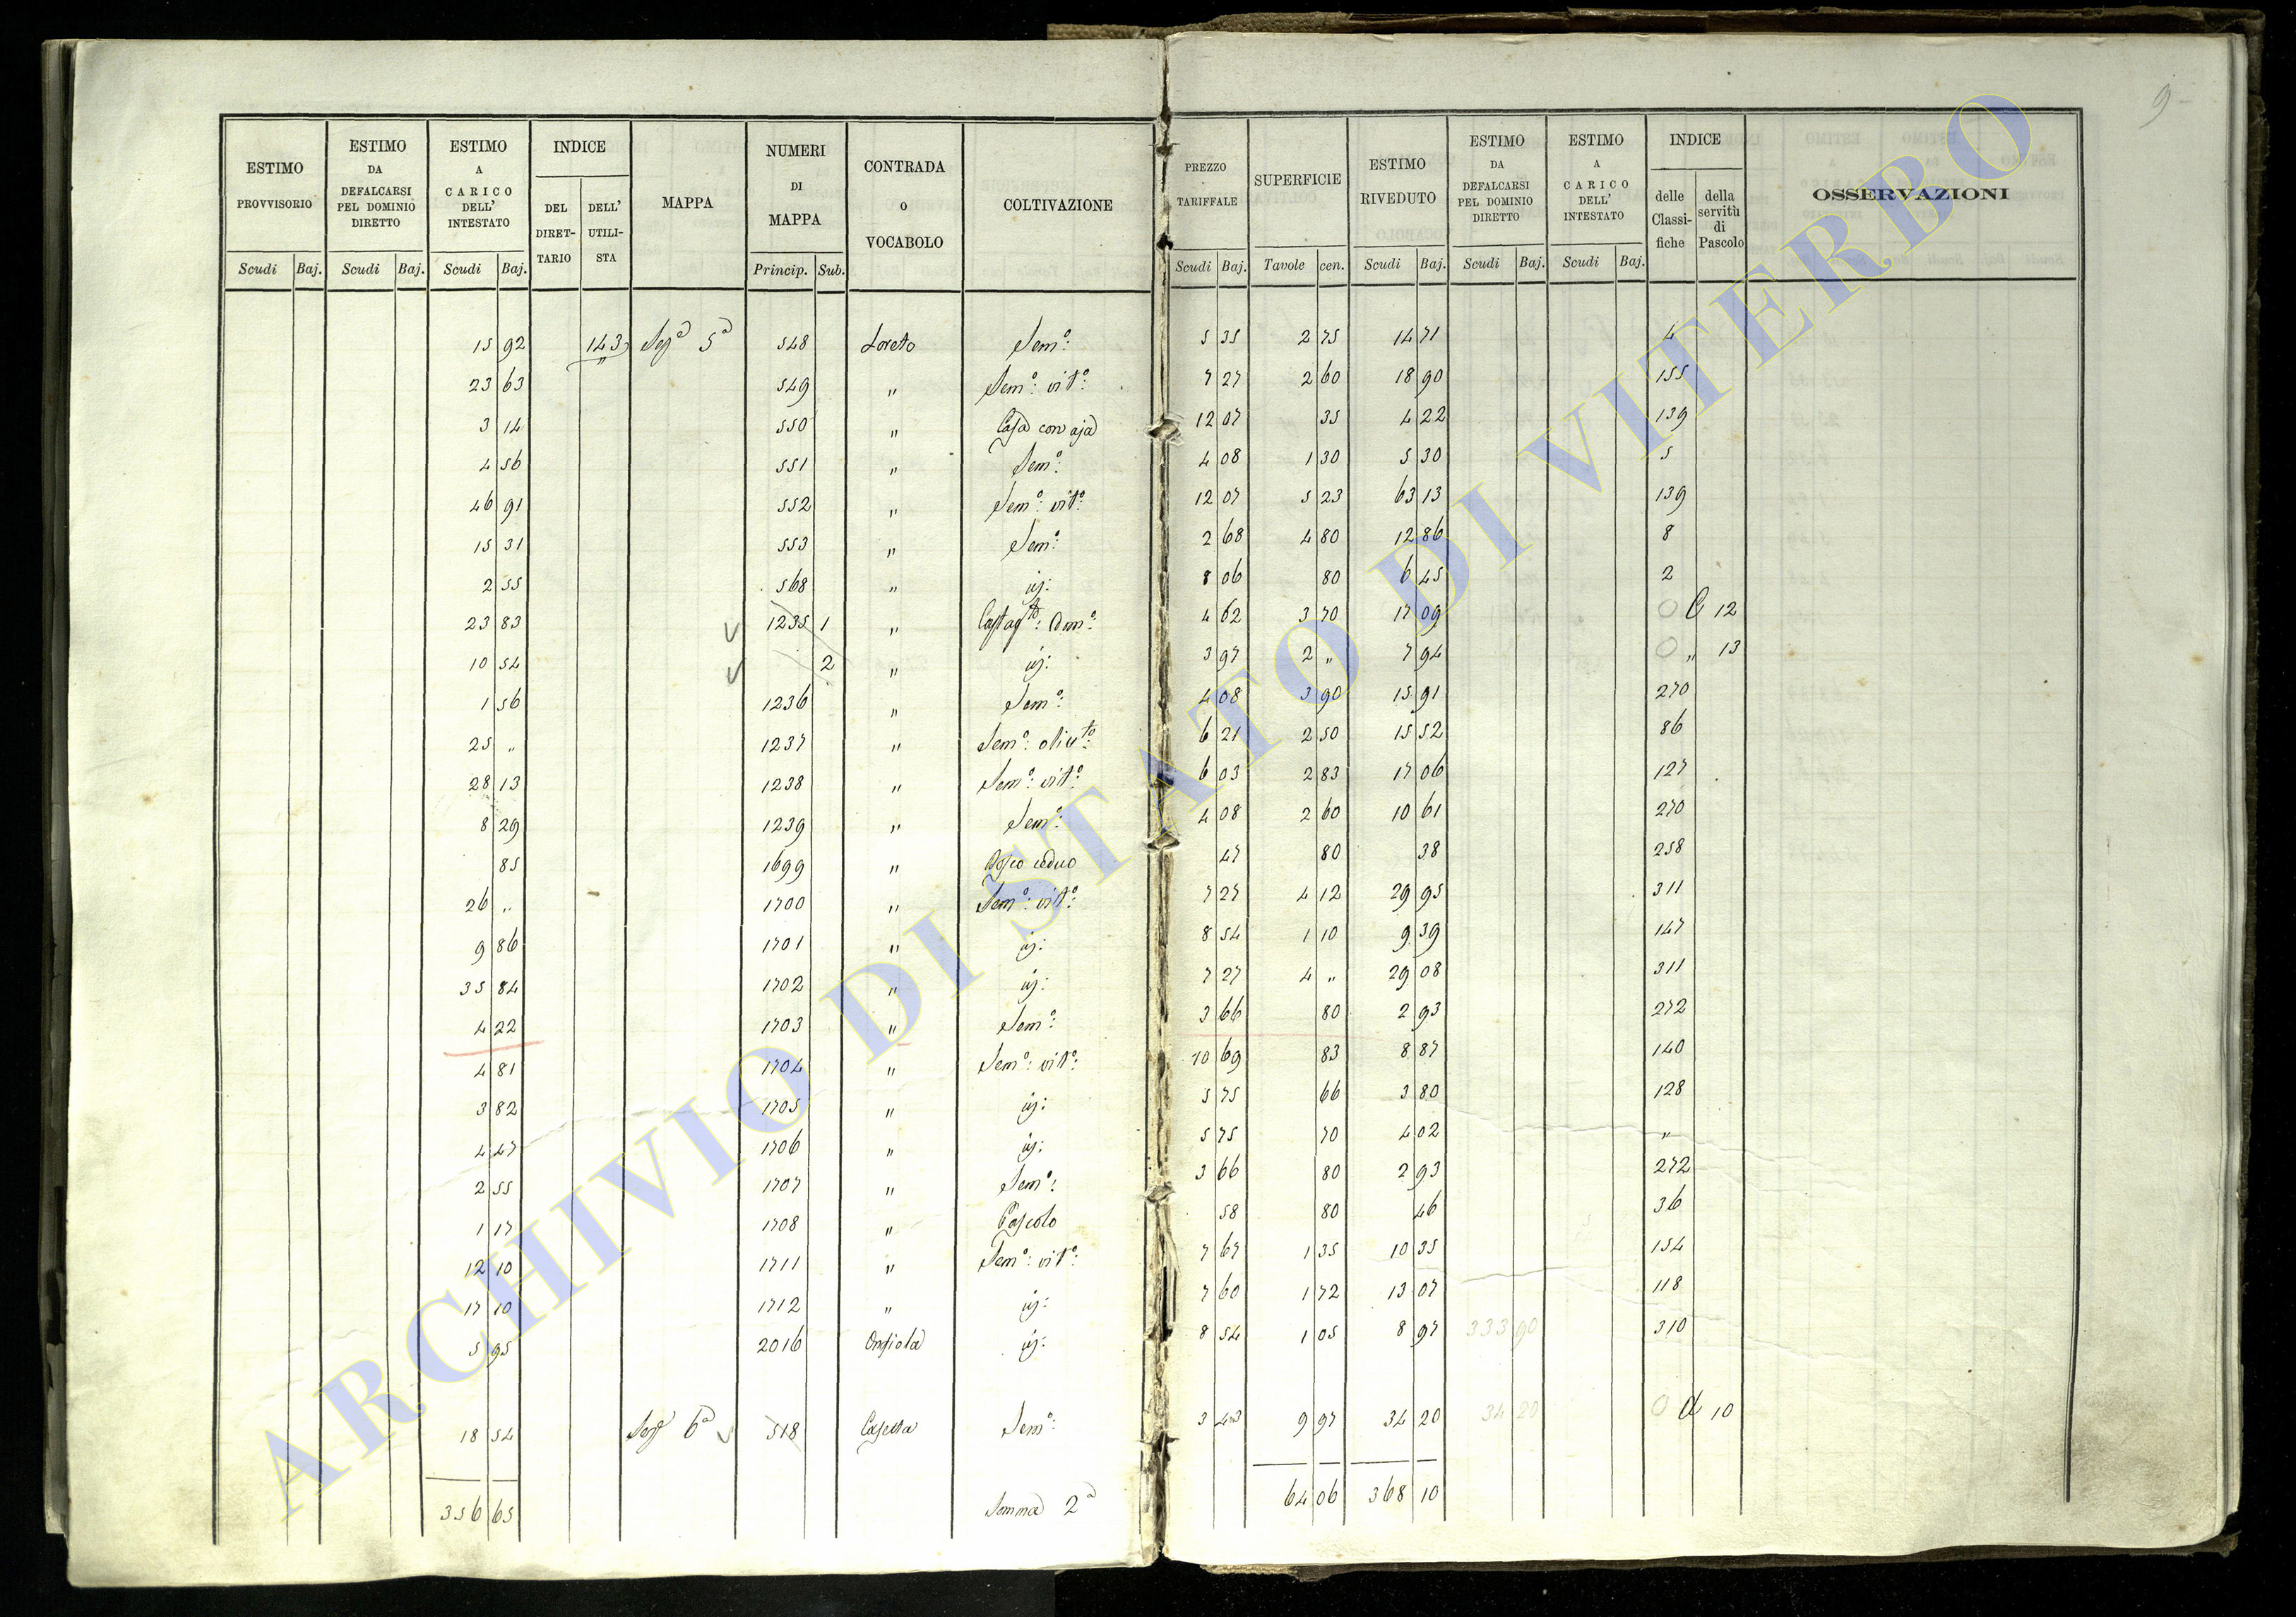 9
ESTIMO PROVVISORIO | ESTIMO DA DEFALCARSI PEL DOMINIO DIRETTO | ESTIMO A CARICO DELL' INTESTATO | INDICE DEL DIRET-TARIO | DELL' UTILI-STA | MAPPA | NUMERI DI MAPPA | CONTRADA O VOCABOLO | COLTIVAZIONE | PREZZO TARIFFALE | SUPERFICIE | ESTIMO RIVEDUTO | ESTIMO DA DEFALCARSI PEL DOMINIO DIRETTO | ESTIMO A CARICO DELL' INTESTATO | INDICE delle Classi-fiche | della servitù di Pascolo | OSSERVAZIONI
Scudi Baj. | Scudi Baj. | Scudi Baj. | Princip. Sub. | Scudi Baj. | Tavole cen. | Scudi Baj. | Scudi Baj. | Scudi Baj.
15 92 | 143 | Sez.a 5a | 548 | Loreto | Sem.o: | 5 35 | 2 75 | 14 71 | 4
23 63 | 549 | " | Sem.o: vit.o: | 7 27 | 2 60 | 18 90 | 155
3 14 | 550 | " | Casa con aja | 12 07 | 35 | 4 22 | 139
4 56 | 551 | " | Sem.o: | 4 08 | 1 30 | 5 30 | 5
46 91 | 552 | " | Sem.o: vit.o: | 12 07 | 5 23 | 63 13 | 139
15 31 | 553 | " | Sem.o: | 2 68 | 4 80 | 12 86 | 8
2 55 | 568 | " | id: | 8 06 | 80 | 6 45 | 2
23 83 | 1235 1 | " | Castag.to: Dom.o: | 4 62 | 3 70 | 17 09 | 0 C 12
10 54 | 2 | " | id: | 3 97 | 2 " | 7 94 | 0 " 13
1 56 | 1236 | " | Sem.o: | 4 08 | 3 90 | 15 91 | 270
25 " | 1237 | " | Sem.o: oliv.to: | 6 21 | 2 50 | 15 52 | 86
28 13 | 1238 | " | Sem.o: vit.o: | 6 03 | 2 83 | 17 06 | 127
8 29 | 1239 | " | Sem.o: | 4 08 | 2 60 | 10 61 | 270
85 | 1699 | " | Bosco ceduo | 47 | 80 | 38 | 258
26 " | 1700 | " | Sem.o: vit.o: | 7 27 | 4 12 | 29 95 | 311
9 86 | 1701 | " | id: | 8 54 | 1 10 | 9 39 | 147
35 84 | 1702 | " | id: | 7 27 | 4 " | 29 08 | 311
4 22 | 1703 | " | Sem.o: | 3 66 | 80 | 2 93 | 272
4 81 | 1704 | " | Sem.o: vit.o: | 10 69 | 83 | 8 87 | 140
3 82 | 1705 | " | id: | 5 75 | 66 | 3 80 | 128
4 47 | 1706 | " | id: | 5 75 | 70 | 4 02 | "
2 55 | 1707 | " | Sem.o: | 3 66 | 80 | 2 93 | 272
1 17 | 1708 | " | Pascolo | 58 | 80 | 46 | 36
12 10 | 1711 | " | Sem.o: vit.o: | 7 67 | 1 35 | 10 35 | 154
17 10 | 1712 | " | id: | 7 60 | 1 72 | 13 07 | 118
5 95 | 2016 | Onfiola | id: | 8 54 | 1 05 | 8 97 | 333 90 | 310
18 54 | Sez.a 6a | 518 | Casetta | Sem.o: | 3 43 | 9 97 | 34 20 | 34 20 | 0 d 10
356 65 | Somma 2a | 64 06 | 368 10
ARCHIVIO DI STATO DI VITERBO